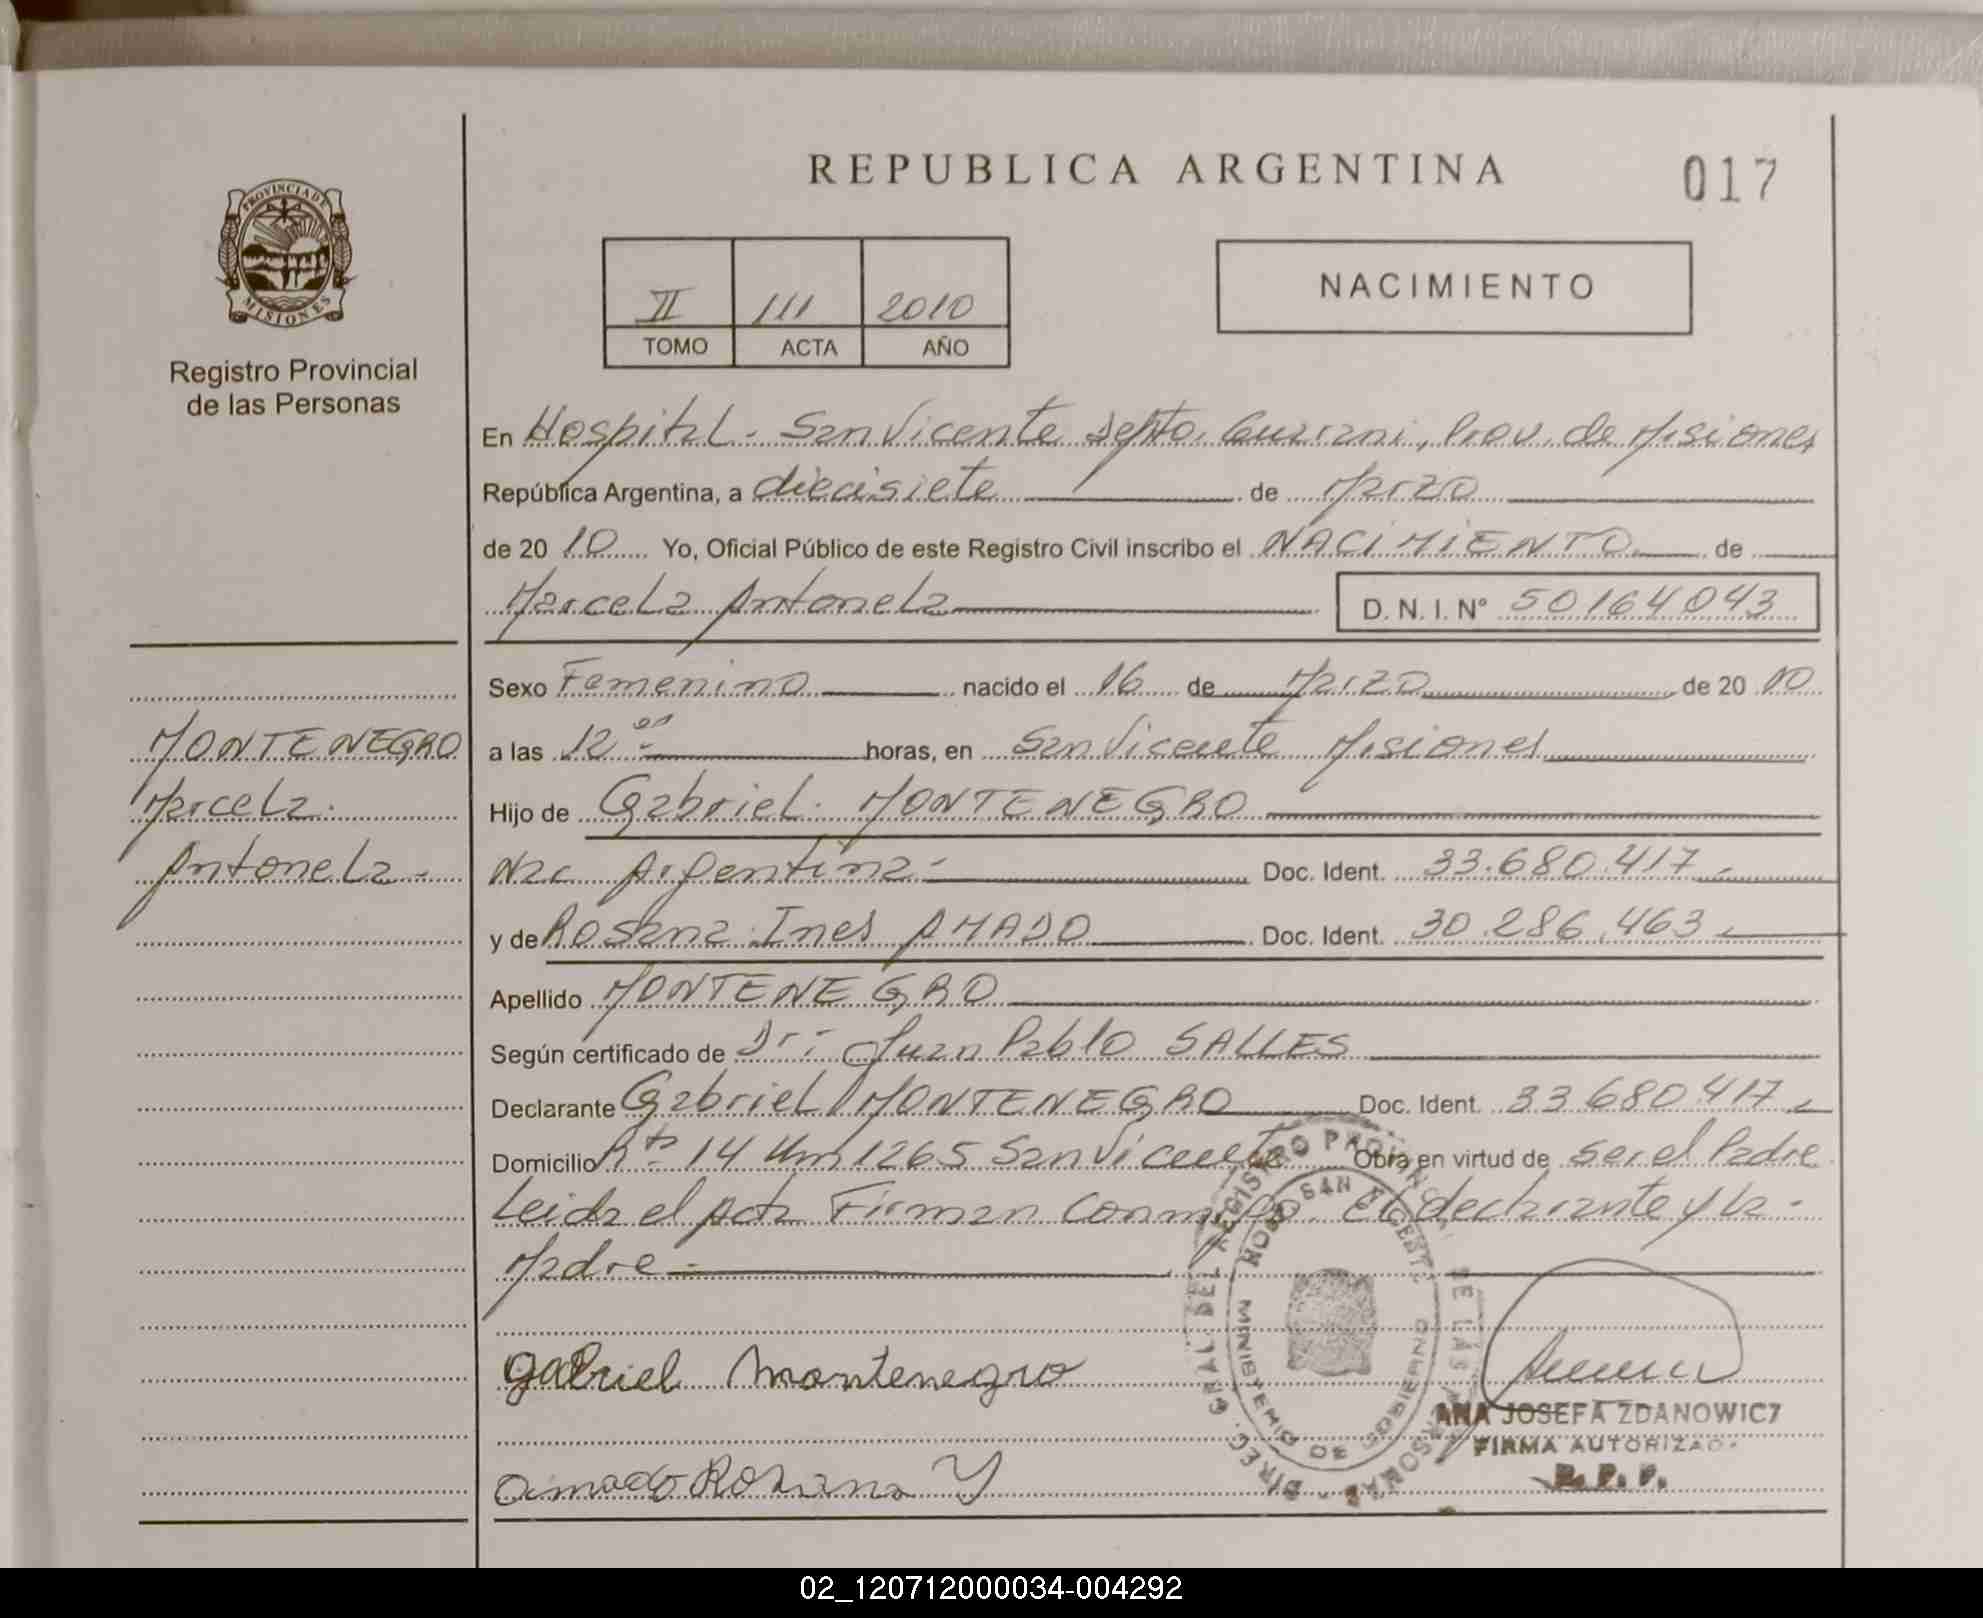 REPUBLICA ARGENTINA
017
PROVINCIA DE
MISIONES
Registro Provincial
de las Personas
II 111 2010
TOMO ACTA AÑO
NACIMIENTO
En Hospital - San Vicente Depto. Guarani, Prov. de Misiones
República Argentina, a diecisiete de Marzo
de 20 10 Yo, Oficial Público de este Registro Civil inscribo el NACIMIENTO de
Marcela Antonela D. N. I. N° 50164043
Sexo Femenino nacido el 16 de Marzo de 20 10
a las 12 00 horas, en San Vicente Misiones
Hijo de Gabriel MONTENEGRO
Nac Argentina - Doc. Ident. 33.680.417
y de Rosana Ines AMADO Doc. Ident. 30.286.463
Apellido MONTENEGRO
Según certificado de Dr: Juan Pablo SALLES
Declarante Gabriel MONTENEGRO Doc. Ident. 33.680.417
Domicilio Rta 14 Km 1265 San Vicente Obra en virtud de ser el Padre
Leida el Acta Firman Conmigo. El declarante y la -
Madre -
MONTENEGRO
Marcela
Antonela -
Gabriel Montenegro
Amado Rosana Y
DIREC. GRAL. DEL REGISTRO PROVINCIAL DE LAS PERSONAS
HOSP SAN VICENTE
MINISTERIO DE GOBIERNO
ANA JOSEFA ZDANOWICZ
FIRMA AUTORIZADA
R. P. P.
02_120712000034-004292